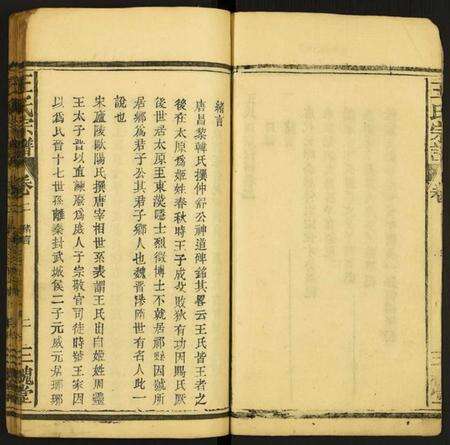 緒言
唐昌黎韓氏撰仲舒公神道碑銘其畧云王氏皆王者之
後在太原爲姬姓春秋時王子成父敗狄有功因賜氏厥
後世居太原至東漢隱士烈徵博士不就居祁縣因號所
居鄉爲君子公其君子鄉人也魏晉隋世有名人此一
說也
宋廬陵歐陽氏撰唐宰相世系表謂王氏出自姬姓周靈
王太子晉以直諫廢爲庶人子宗敬官司徒時號王家因
以爲氏晉十七世孫離秦封武城侯二子元威元居瑯琊
王氏宗譜
卷二
緒言
二
三槐堂
王氏宗譜
卷
三
堂